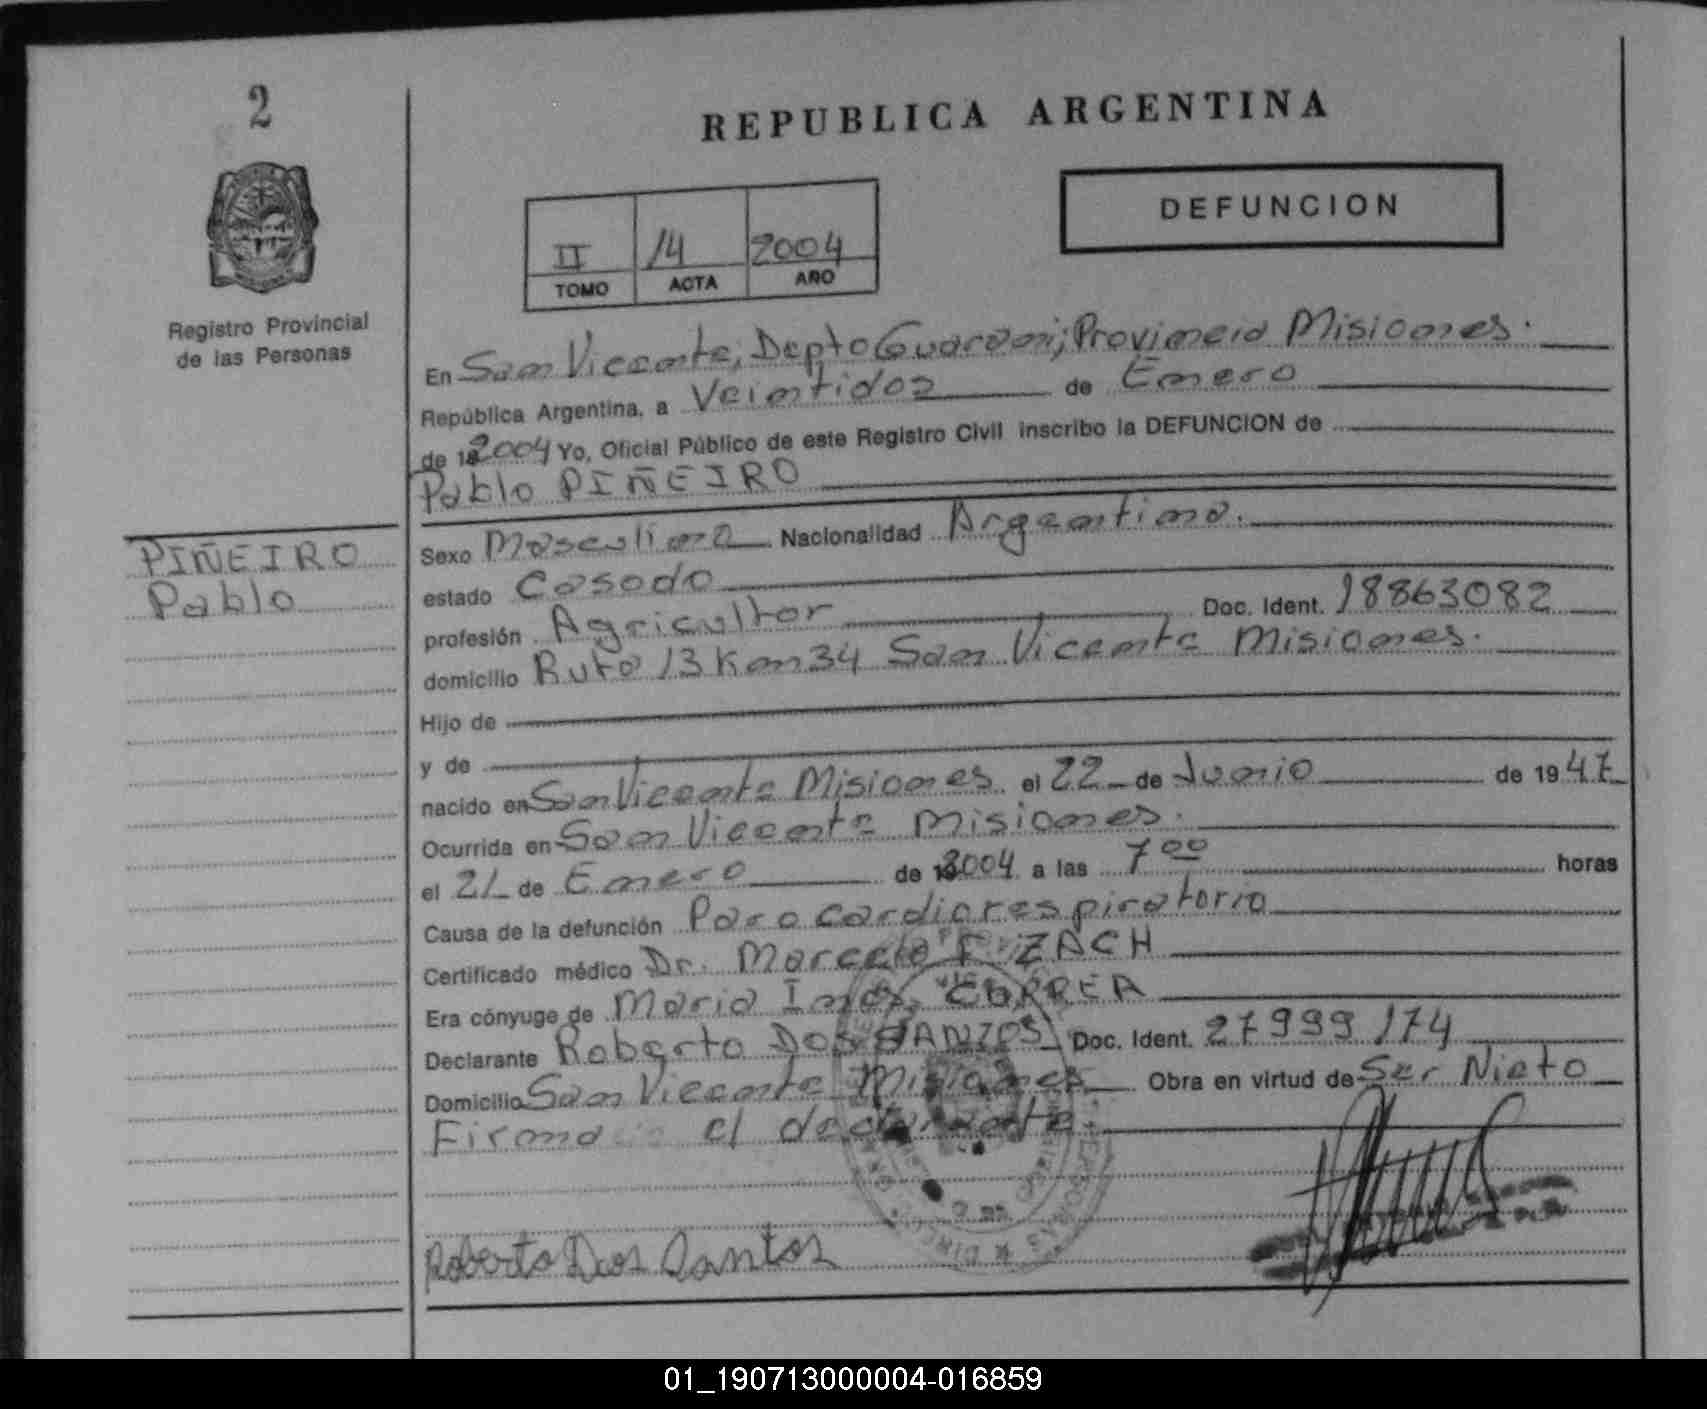 2
REPUBLICA ARGENTINA
DEFUNCION
II 14 2004
TOMO ACTA AÑO
Registro Provincial
de las Personas
En San Vicente, Depto Guarani; Provincia Misiones.
República Argentina, a Veintidos de Enero
de 19 2004 Yo, Oficial Público de este Registro Civil inscribo la DEFUNCION de
Pablo PIÑEIRO
PIÑEIRO
Pablo
Sexo Masculino Nacionalidad Argentina.
estado Casado
profesión Agricultor Doc. Ident. 18863082
domicilio Ruta 13 Km 34 San Vicente Misiones.
Hijo de
y de
nacido en San Vicente Misiones el 22 de Junio de 1947
Ocurrida en San Vicente Misiones.
el 21 de Enero de 2004 a las 7 00 horas
Causa de la defunción Paro cardiorespiratorio
Certificado médico Dr. Marcelo F. ZACH
Era cónyuge de Maria Ines CORREA
Declarante Roberto DOS SANTOS Doc. Ident. 27999174
Domicilio San Vicente Misiones Obra en virtud de Ser Nieto
Firma el declarante.
Roberto Dos Santos
01_190713000004-016859